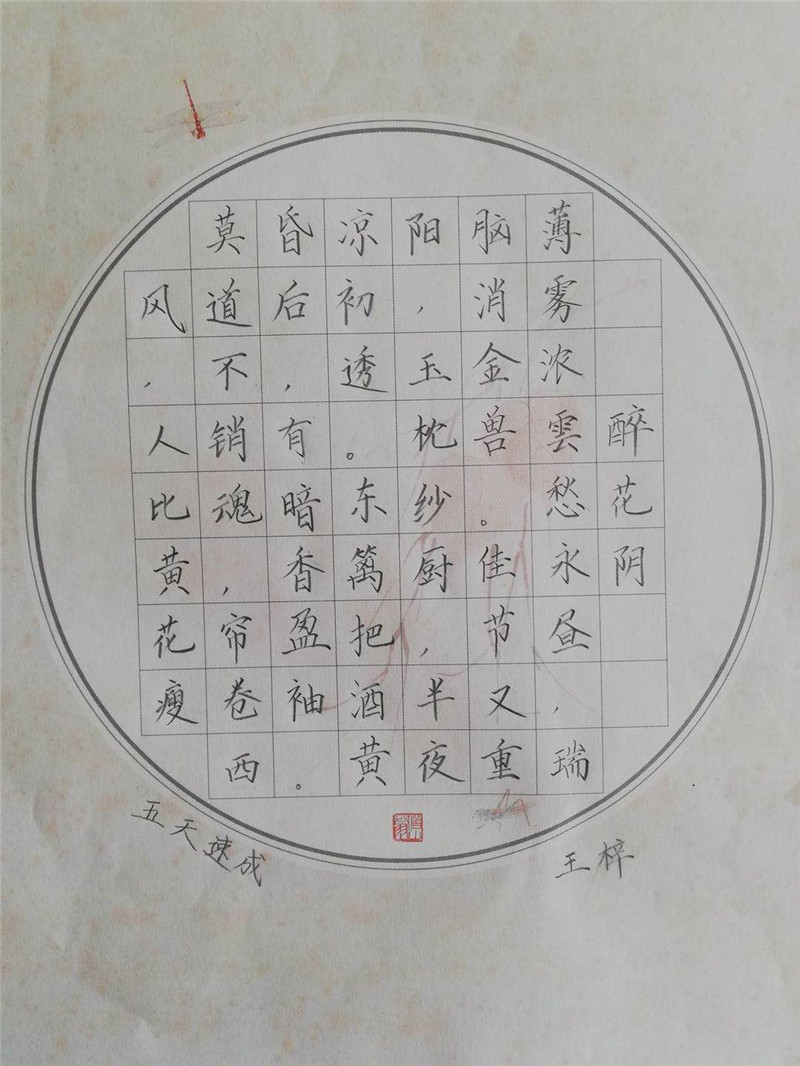 醉花阴
薄雾浓雲愁永昼，瑞
脑消金兽。佳节又重
阳，玉枕纱厨，半夜
凉初透。东篱把酒黄
昏后，有暗香盈袖。
莫道不销魂，帘卷西
风，人比黄花瘦
五天速成
王梓